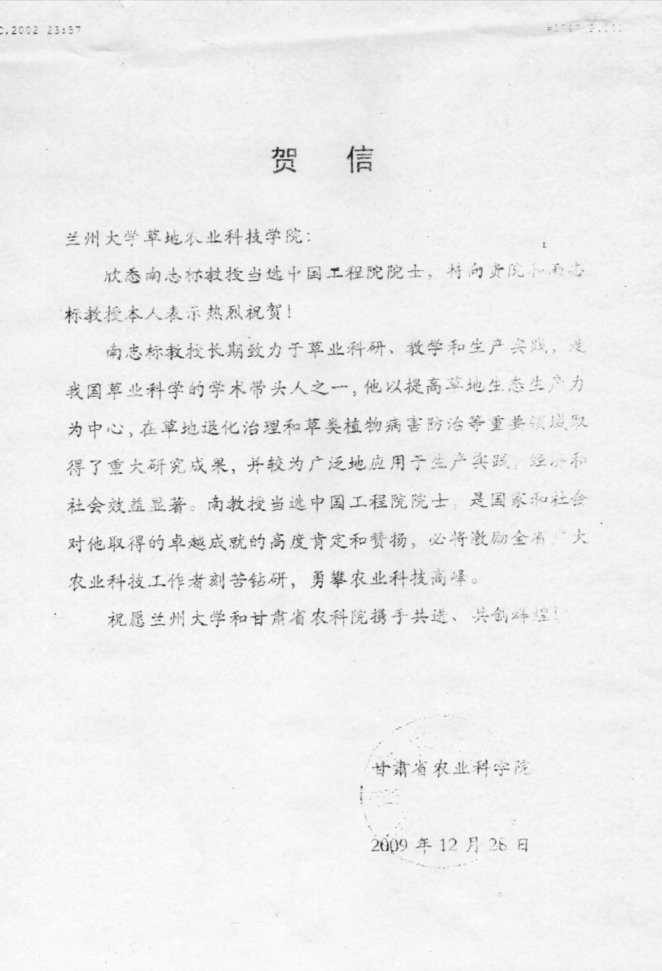 C.2002 23:57
贺 信
兰州大学草地农业科技学院：
欣悉南志标教授当选中国工程院院士，特向贵院和南志
标教授本人表示热烈祝贺！
南志标教授长期致力于草业科研、教学和生产实践，是
我国草业科学的学术带头人之一，他以提高草地生态生产力
为中心，在草地退化治理和草类植物病害防治等重要领域取
得了重大研究成果，并较为广泛地应用于生产实践，经济和
社会效益显著。南教授当选中国工程院院士，是国家和社会
对他取得的卓越成就的高度肯定和赞扬，必将激励全省广大
农业科技工作者刻苦钻研，勇攀农业科技高峰。
祝愿兰州大学和甘肃省农科院携手共进、共创辉煌！
甘肃省农业科学院
2009 年 12 月 28 日